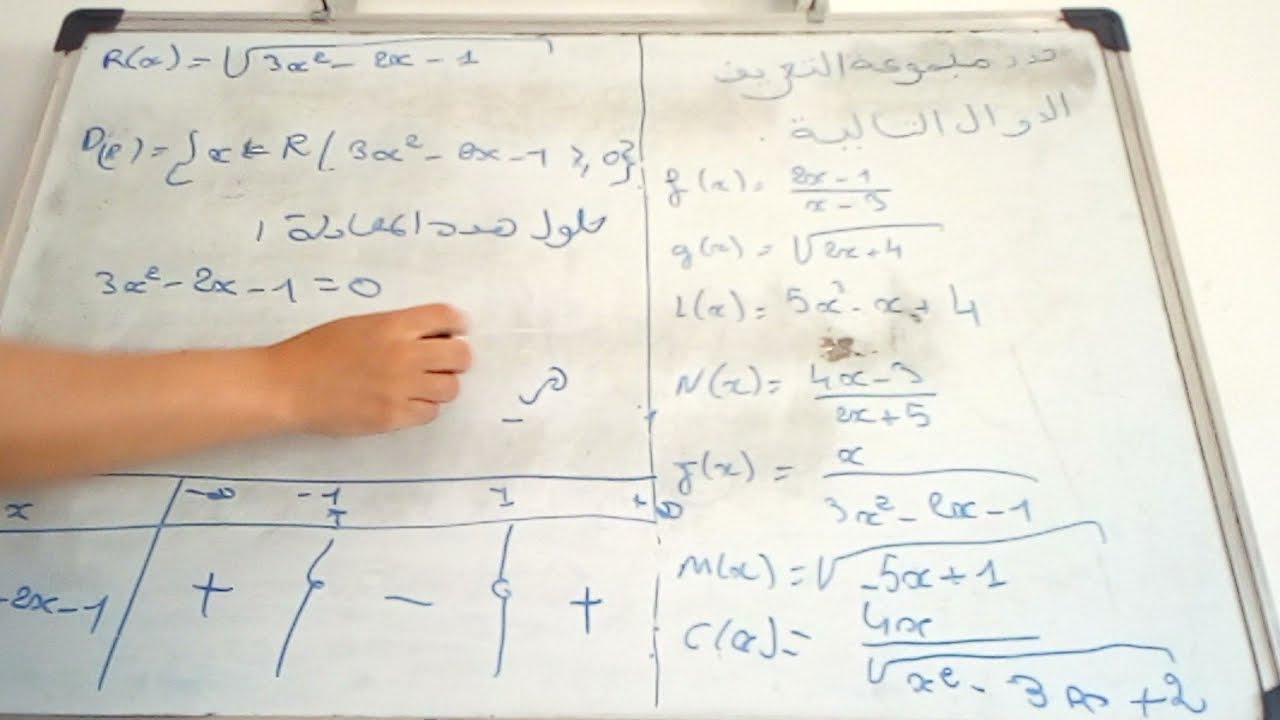 R(x) = √3x² - 2x - 1
D(R) = {x ∈ R / 3x² - 2x - 1 ≥ 0}
حلول هده المعادلة
3x² - 2x - 1 = 0
x -∞ -1 1 +∞
-2x - 1 + - +
حدد مجموعة التعريف
الدوال التالية .
f(x) = (2x - 1)/(x - 3)
g(x) = √2x + 4
L(x) = 5x² - x + 4
N(x) = (4x - 3)/(2x + 5)
J(x) = x/(3x² - 2x - 1)
M(x) = √-5x + 1
C(x) = 4x/√x² - 3x + 2